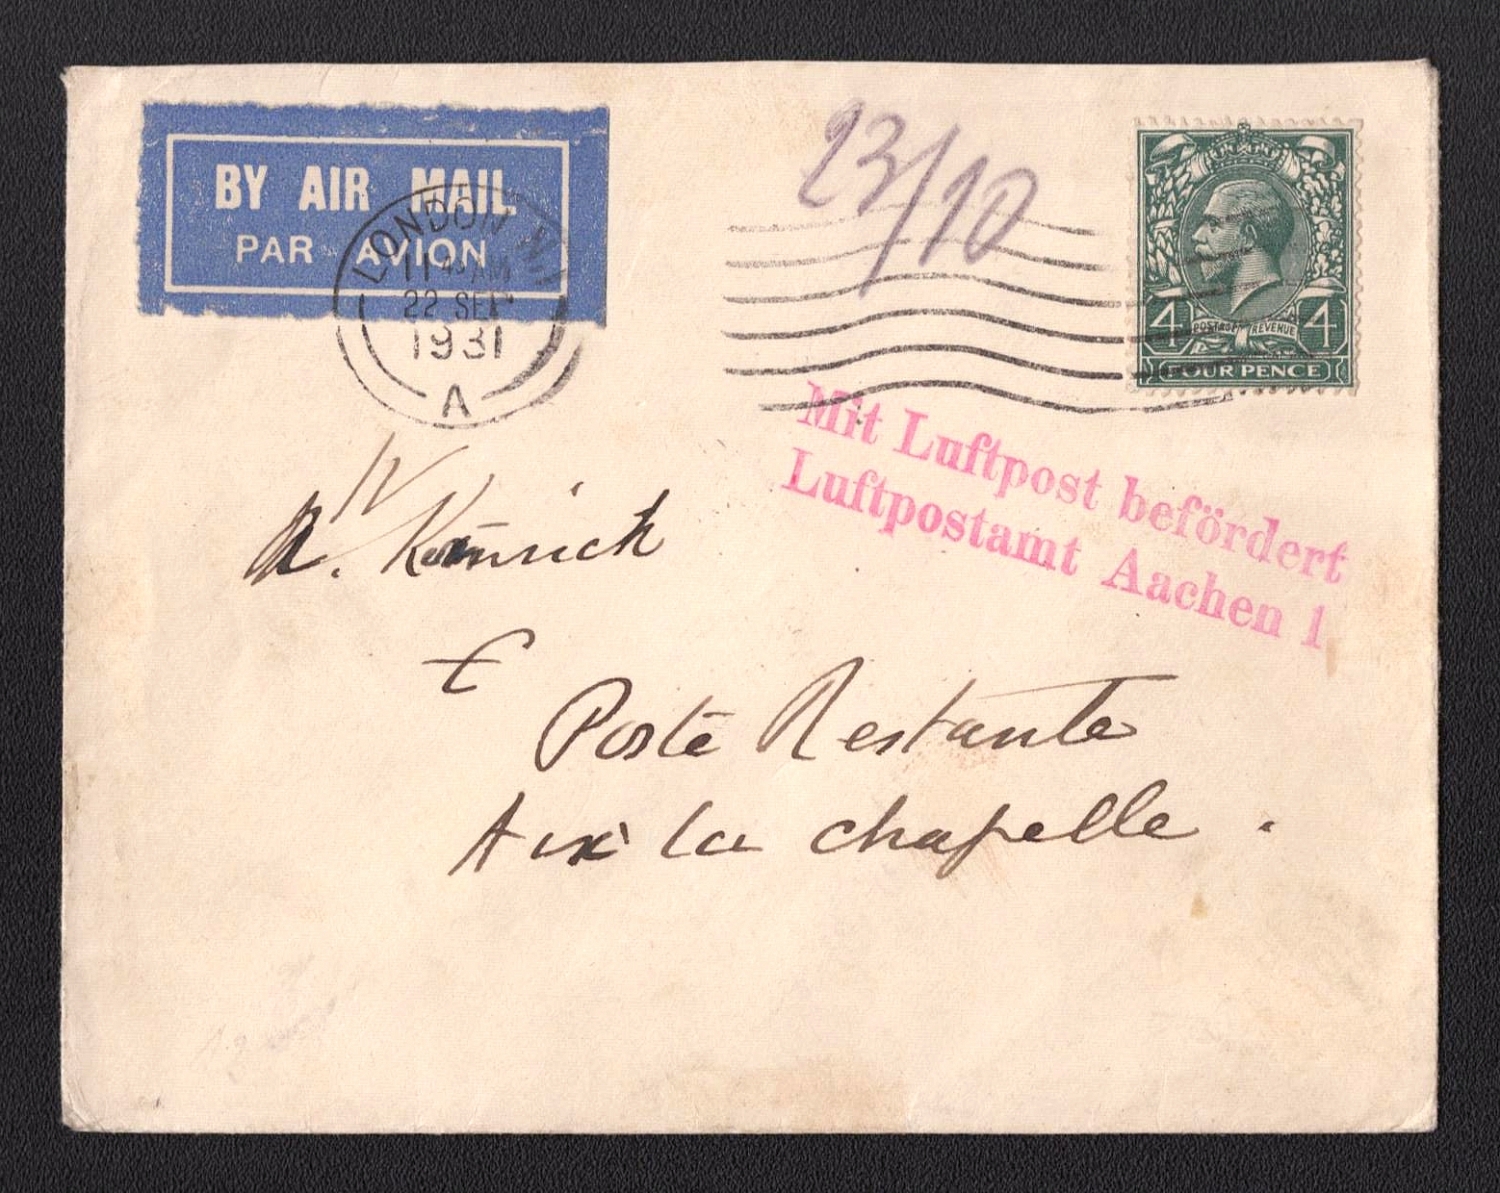 BY AIR MAIL
PAR AVION
LONDON
11 AM
22 SEP
1931
A
23/10
4 POSTAGE REVENUE 4
FOUR PENCE
Mit Luftpost befördert
Luftpostamt Aachen 1
Poste Restante
Aix la chapelle.